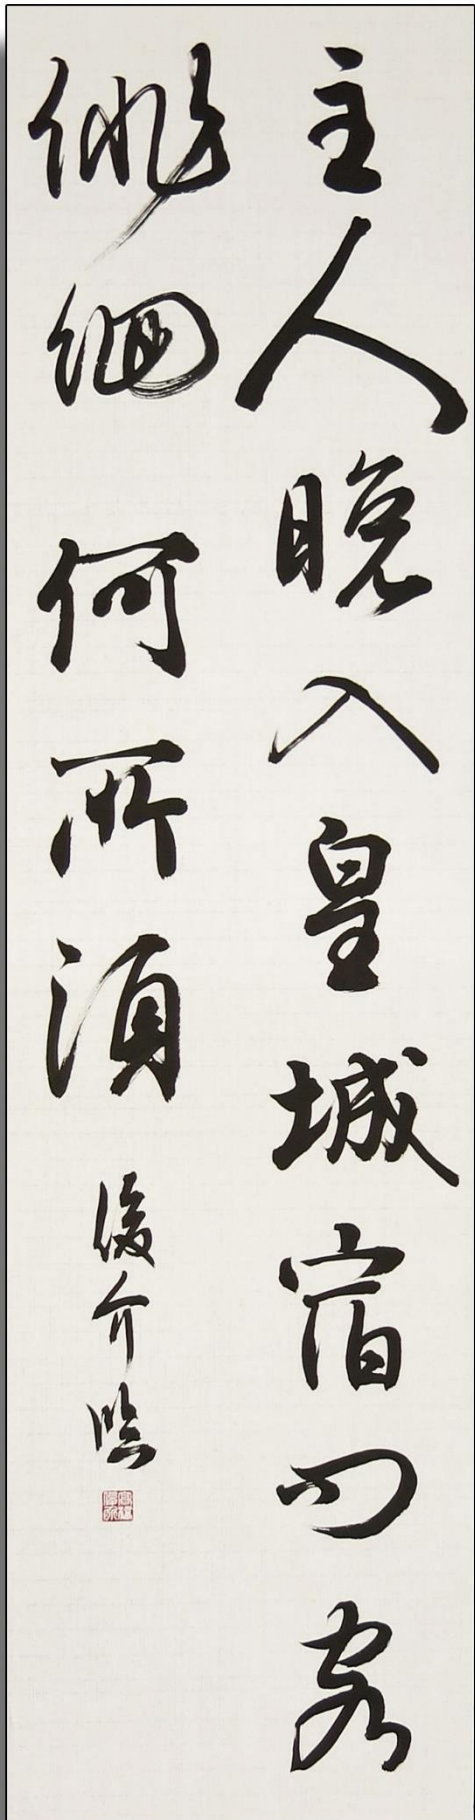 主人晚入皇城宿問客
俳徊何所須
俊介臨